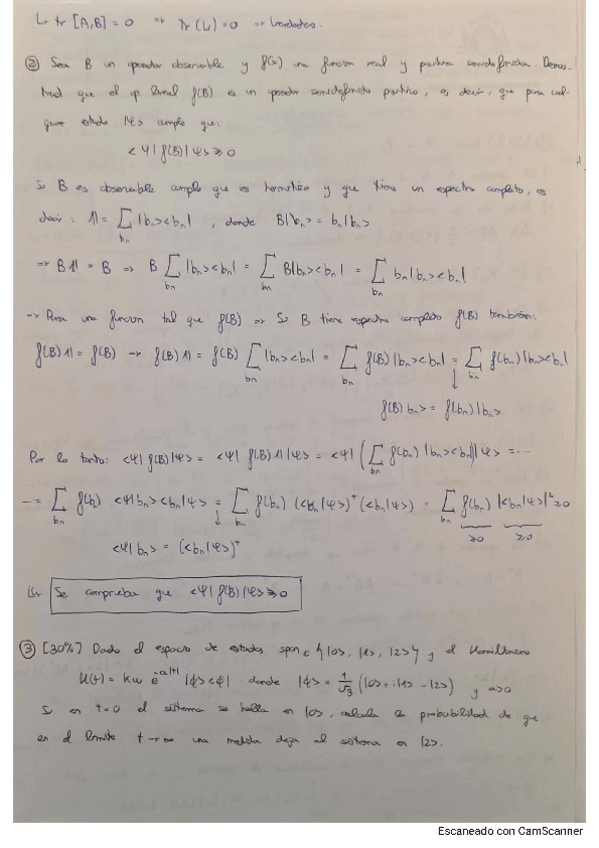 ↳ tr [A,B] = 0 ⇒ Tr (L) = 0 ⇒ Verdadero.
② Sea B un operador observable y f(x) una funcion real y positiva semidefinida. Demos-
trad que el op. lineal f(B) es un operador semidefinido positivo, es decir, que para cual-
quier estado |ψ> cumple que:
<ψ| f(B) |ψ> ⩾ 0
Si B es observable cumple que es hermitico y que tiene un espectro completo, es
decir: 1l = ∑_{bₙ} |bₙ><bₙ| , donde B|bₙ> = bₙ|bₙ>
⇒ B 1l = B ⇒ B ∑_{bₙ} |bₙ><bₙ| = ∑_{bₙ} B|bₙ><bₙ| = ∑_{bₙ} bₙ|bₙ><bₙ|
→ Para una funcion tal que f(B) ⇒ Si B tiene espectro completo f(B) tambien:
f(B) 1l = f(B) → f(B) 1l = f(B) ∑_{bₙ} |bₙ><bₙ| = ∑_{bₙ} f(B) |bₙ><bₙ| = ∑_{bₙ} f(bₙ) |bₙ><bₙ|
f(B) bₙ> = f(bₙ) |bₙ>
Por lo tanto: <ψ| f(B) |ψ> = <ψ| f(B) 1l |ψ> = <ψ| (∑_{bₙ} f(bₙ) |bₙ><bₙ|) |ψ> = ...
... = ∑_{bₙ} f(bₙ) <ψ|bₙ><bₙ|ψ> = ∑_{bₙ} f(bₙ) (<bₙ|ψ>)⁺ (<bₙ|ψ>) = ∑_{bₙ} f(bₙ) |<bₙ|ψ>|² ⩾ 0
<ψ|bₙ> = (<bₙ|ψ>)⁺ ⩾0 ⩾0
↳ Se comprueba que <ψ| f(B) |ψ> ⩾ 0
③ [30%] Dado el espacio de estados span_C {|0>, |1>, |2>} y el Hamiltoniano
H(t) = ħω e^{-a|t|} |ϕ><ϕ| donde |ϕ> = 1/√3 (|0> + i|1> - |2>) y a>0
Si en t=0 el sistema se halla en |0>, calcula la probabilidad de que
en el limite t→∞ una medida deja el sistema en |2>.
Escaneado con CamScanner